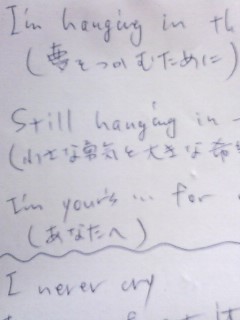 I'm hanging in th
(夢をつかむために)
Still hanging in
(小さな勇気と大きな希
I'm yours... for
(あなたへ)
I never cry